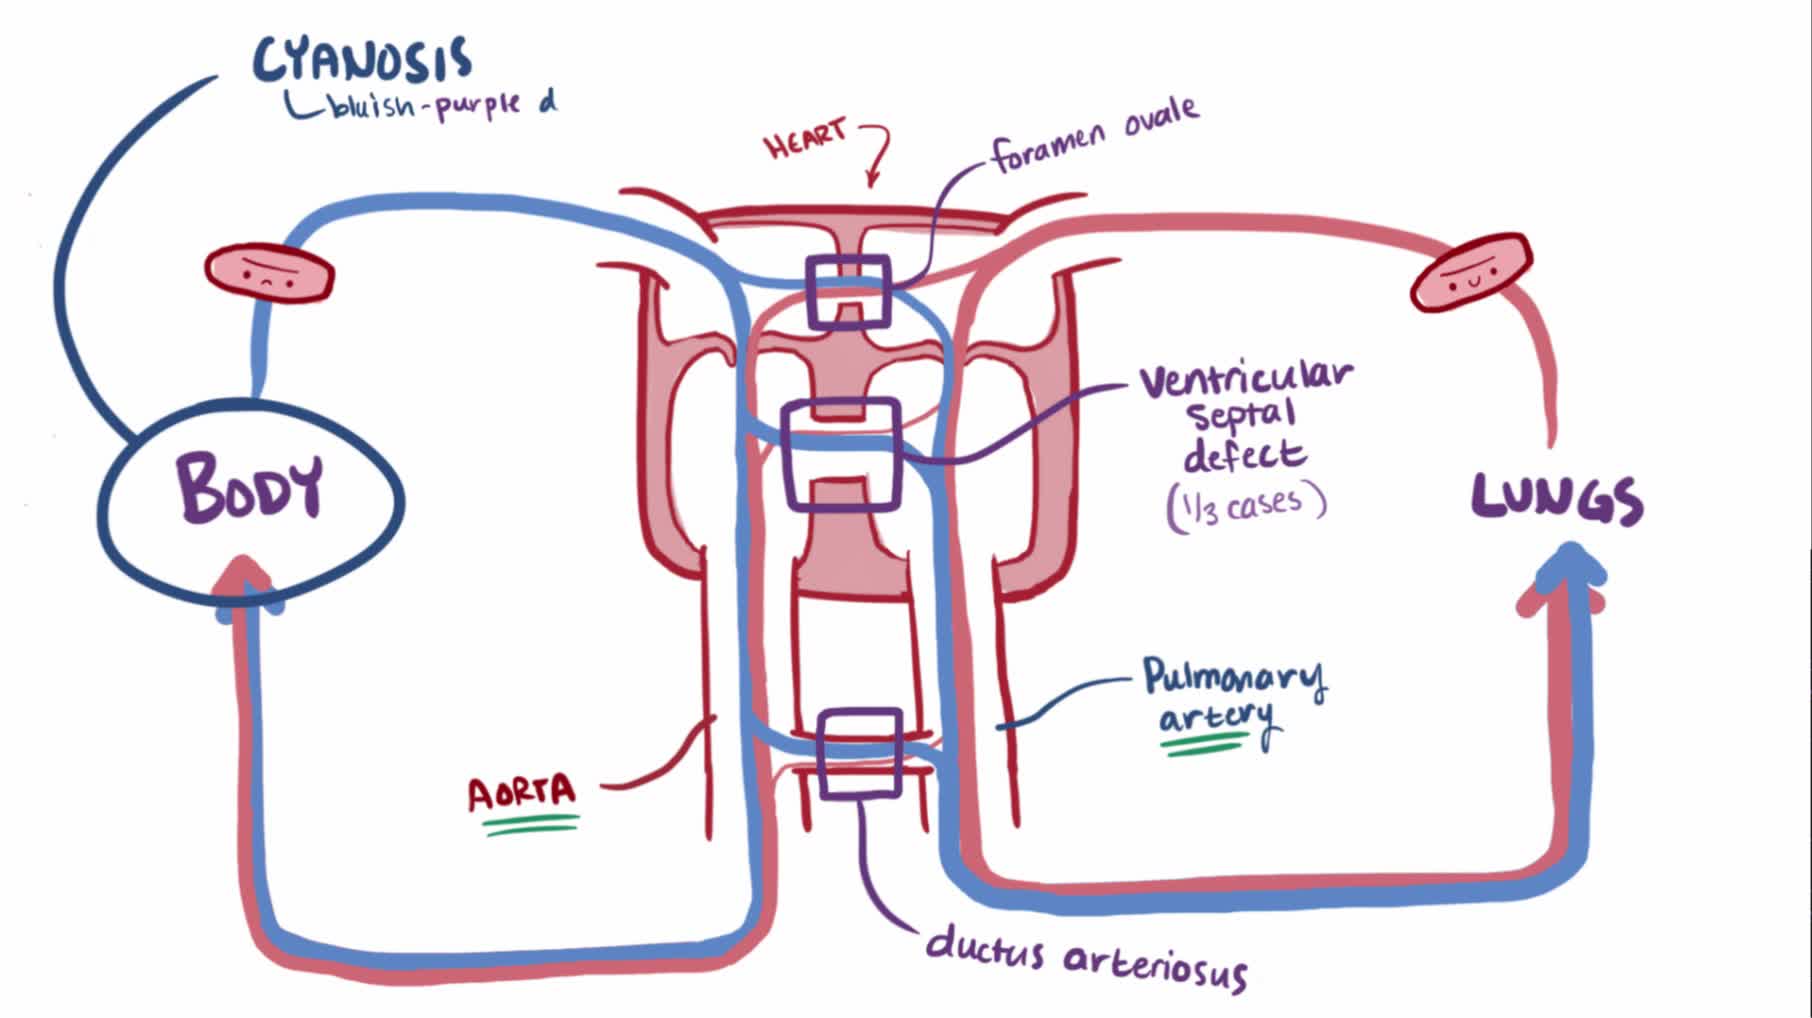 CYANOSIS
bluish-purple d
HEART
foramen ovale
BODY
Ventricular
septal
defect
(1/3 cases)
LUNGS
Pulmonary
artery
AORTA
ductus arteriosus